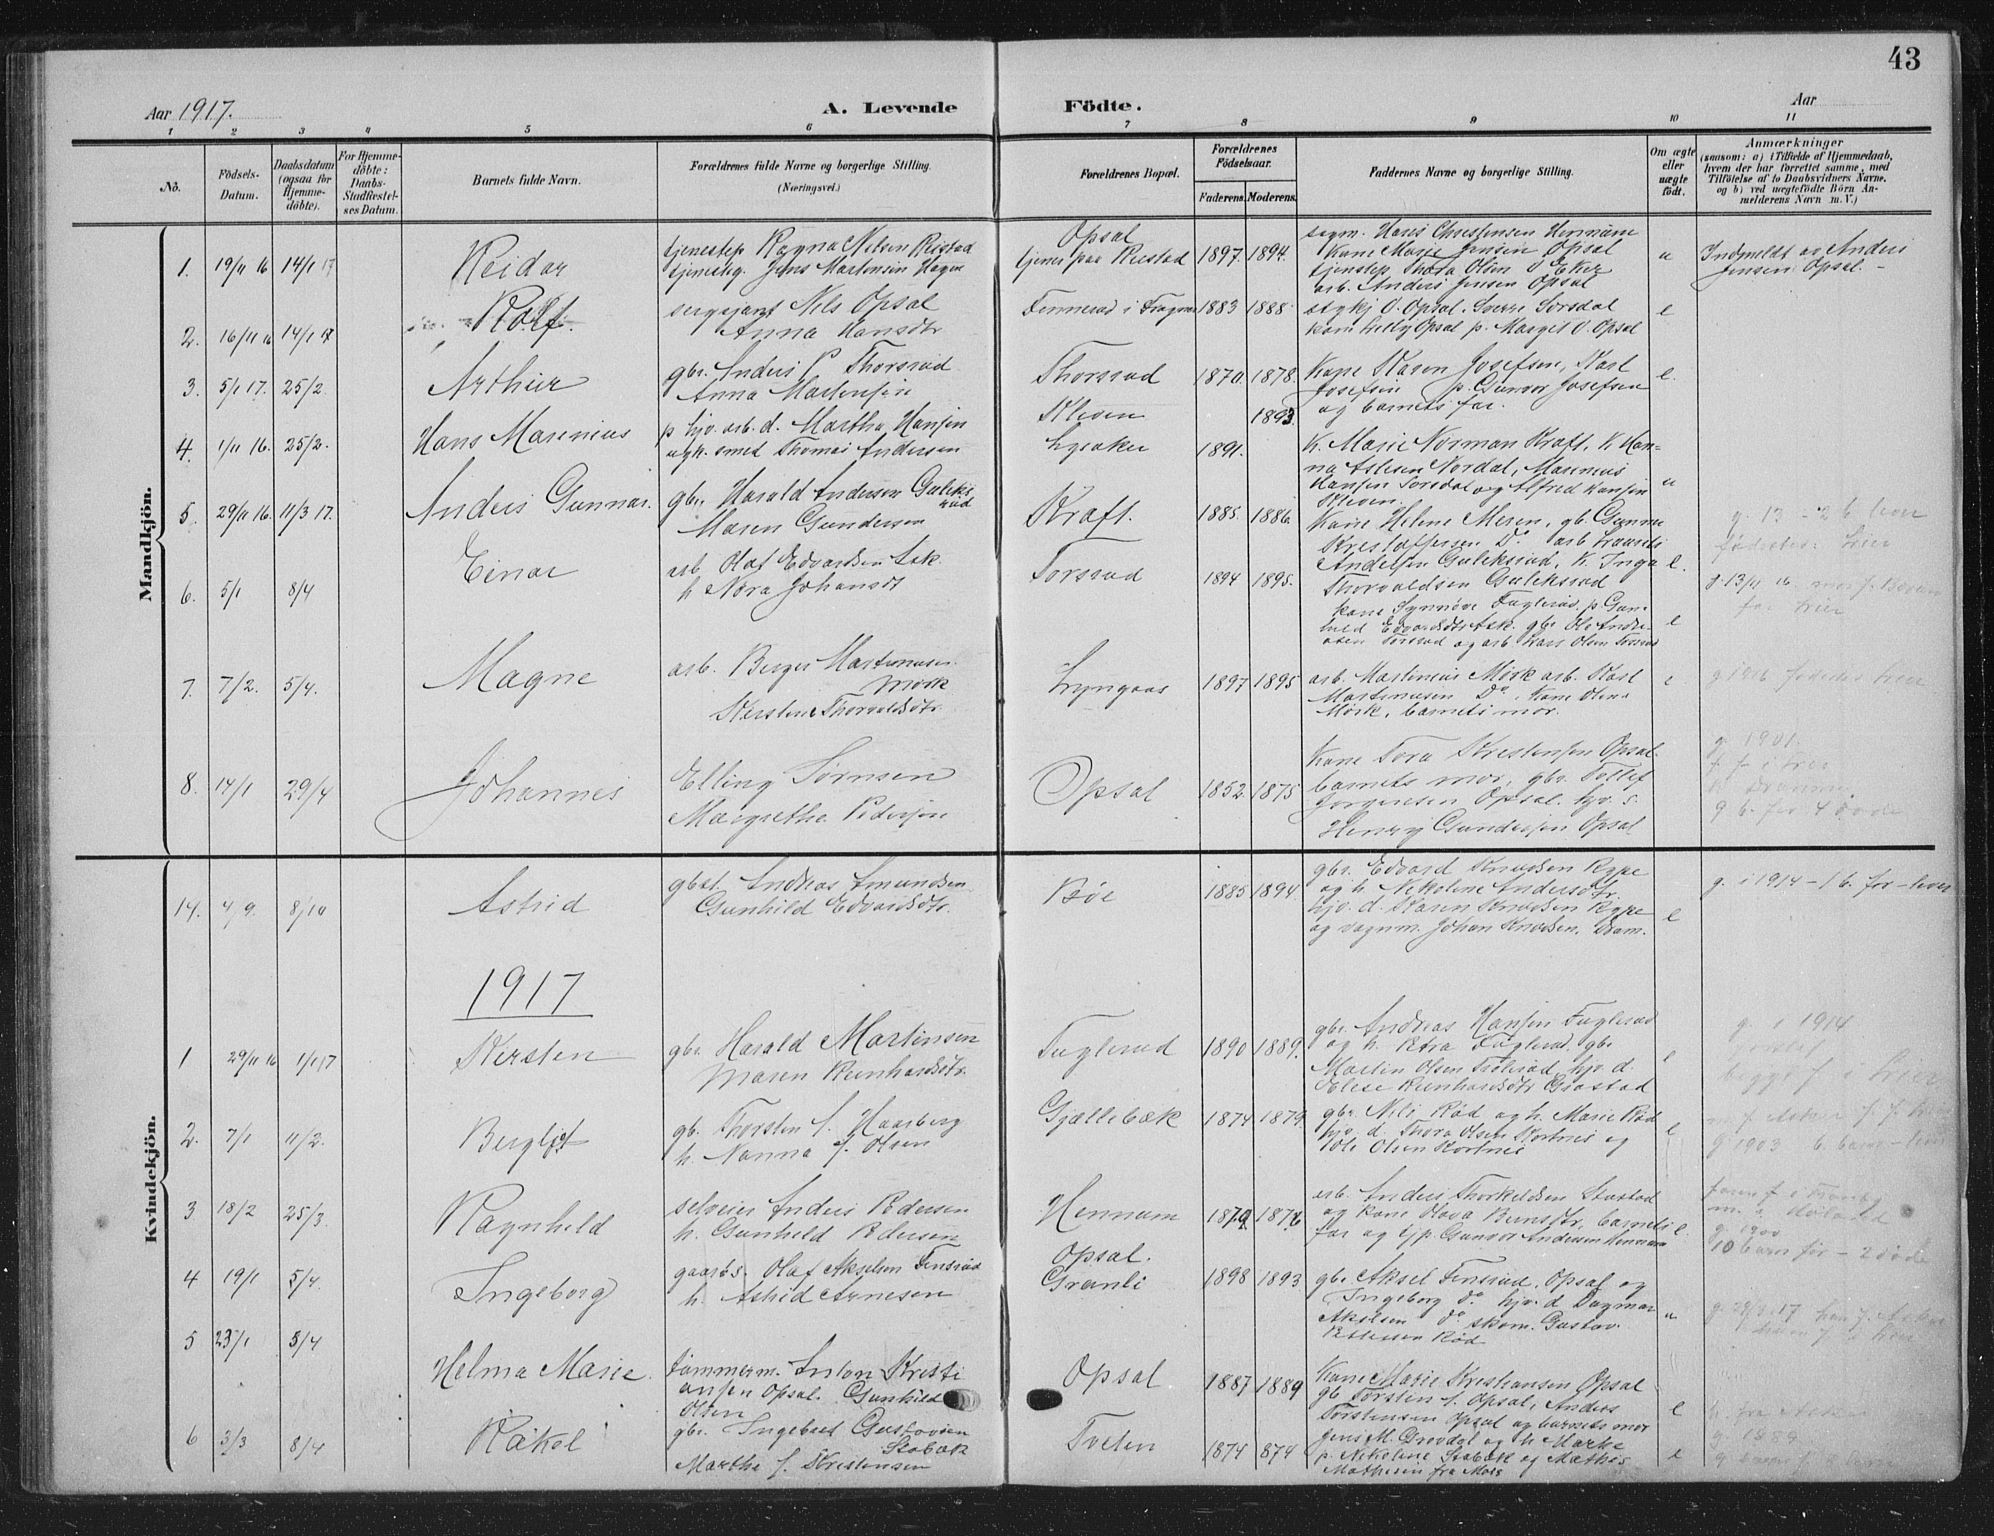 43
Aar 1917. A. Levende Födte. Aar
1 2 3 4 5 6 7 8 9 10 11
No. Födsels-Datum. Daabsdatum (ogsaa for Hjemmedöbte). For Hjemmedöbte: Daabs-Stadfæstelses Datum. Barnets fulde Navn. Forældrenes fulde Navne og borgerlige Stilling. (Næringsvei.) Forældrenes Bopæl. Forældrenes Födselsaar. Faderens. Moderens. Faddernes Navne og borgerlige Stilling. Om ægte eller uægte födt. Anmærkninger (saasom: a) i Tilfælde af Hjemmedaab, hvem der har forrettet samme, med Tilföielse af to Daabsvidners Navne. og b) ved uægtefödte Börn Anmelderens Navn m. V.)
Mandkjön.
1. 19/11 16 14/1 17 Reidar
tjenestep. Ragna Nilsen Rustad
tjenestg. Jens Martinsen Hagen
Opsal
tjener paa Rustad 1897. 1894.
sagm. Hans Christensen Hennum
Kone Marie Jensen Opsal
tjenstep. Thora Olsen Eker
arb. Anders Jensen Opsal
u
Indmeldt av Anders
Jensen Opsal. -
2. 16/11 16 14/1 17 Rolf.
sergeant Nils Opsal
Anna Hansdtr
1883 1888
stykj O. Opsal. Sverre Sørsdal
kone Lully Opsal p. Margit O. Opsal
e
3. 5/1 17. 25/2. Arthur
gbr. Anders P. Thorsrud
Anna Martinsen
Thorsrud 1870. 1878.
Kone Karen Josefsen, Karl
Josefsen p. Gunvor Josefsen
og barnets far.
e.
4. 1/11 16. 25/2. Hans Marenius
p. hjv. arb. d. Martha Hansen
ugk. smed Thomas Andersen
Kleven 1893.
Lysaker 1891.
K. Marie Norman Kraft, K. Han-
na Aslesen Nordal, Marenius
Hansen Sørsdal og Alfred Hansen
Kleven.
u
5. 29/11 16. 11/3 17. Anders Gunnar.
gbr. Harald Andersen Guleks
rud
Maren Gundersen
Kraft. 1885. 1886.
Kone Helene Meren, gb. Gunnar
Kristoffersen Do arb Laurits
Andersen Guleksrud, K. Inga
Thorvaldsen Guleksrud
e.
g. 13 - 2 b. lever
fødested: Lier
6. 5/1 8/4 Einar
arb. Olaf Edvardsen Ask.
h. Nora Johansdtr
Torsrud 1894 1895.
kone Synnøve Fuglerud. p. Gun-
hild Edvardsdtr Ask. gbr Ole Andre-
asen Torsrud og arb Lars Olsen Torsrud
e
far Lier
7. 7/2. 5/4. Magne
arb. Berger Martinusen
Mørk
Kirstine Thorvaldsdtr.
Lyngaas 1897 1895
arb. Martinius Mørk arb. Karl
Martinusen Do, Kone Olena
Mørk, barnets mor.
e
g 1916 fødested Lier
8. 14/1 29/4 Johannes
Elling Sørnsen
Margrethe Pedersen
Opsal 1852. 1875
Kone Tora Kristensen Opsal
barnets mor, gbr. Tollef
Jørgensen Opsal. hjv. s.
Henry Gundersen Opsal
g. 1901.
f. f. i Lier
g b. før 4 døde
Kvindekjön.
14. 4/9. 8/10 Astrid
gbst. Andreas Amundsen
Gunhild Edvardsdtr.
Bøe 1885 1894.
gbr. Edvard Knudsen Rype
og h. Nikoline Andersdtr,
hjv. d. Karen Knudsen Rype
og vognm. Johan Knudsen. Dram.
e
g. i 1914 - 1 b. før - lever
1917
1 29/11 16 1/1 17 Kirsten
gbr. Harald Martinsen
Maren Reinhardsdtr.
Fuglerud 1890 1889.
gbr. Andreas Hansen Fuglerud
og h. Petra Fuglerud, gbr
Martin Olsen Trolerud, hjv. d.
Elise Reinhardsdtr Grøstad
e
g. i 1914
begge f. i Lier
2. 7/1 11/2. Bergljot
gb. Thorsten J. Haasberg
h. Nanna J. Olsen
Gjellebæk 1874 1879.
gbr. Nils Rød og h. Marie Rød
hjv. d. Thora Olsen Kortnes og
Ole Olsen Kortnes
e
g 1903 6 barn - lever
3 18/2 25/3. Ragnhild
selveier Anders Pedersen
h. Gunhild Pedersen
Hennum 1879. 1876
arb. Anders Thorkildsen Stastad
og kone Olava Bernsdtr, barnets
far og u/p. Gunvor Andersen Hennum
e.
g. 1900
10 barn før - 2 døde
4 19/1 5/4. Ingeborg
gaarbs. Olaf Akselsen Finsrud
h. Astrid Arnesen
Opsal.
Granli 1898 1893
gbr. Aksel Finsrud, Opsal og
Ingeborg do. hjv. d Dagmar
Akselsen do skom. Gustav
Pettersen Rød
u
5 23/1 8/4 Helma Marie.
tømmerm. Anton Kristi
ansen Opsal. Gunhild
Olsen
Opsal 1887 1889
Kone Marie Kristiansen Opsal
gb Torsten J. Opsal, Anders
Torstensen Opsal og barnets mor
e
6 3/3 8/4 Rakel
gbr. Ingebret Gustavsen
Stabæk
Martha J. Kristensen
Tveten 1874 874
Jens M. Drevdal og h Marke
p. Nikoline Stabæk og Mathis
Mathisen fra Moss
e